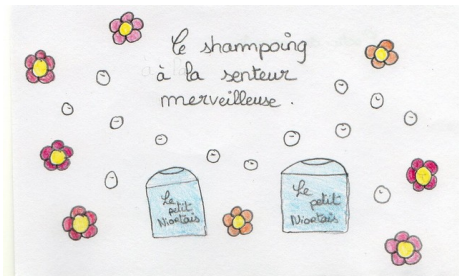 Le shampoing
à la senteur
merveilleuse.
Le
petit
Niortais
Le
petit
Niortais